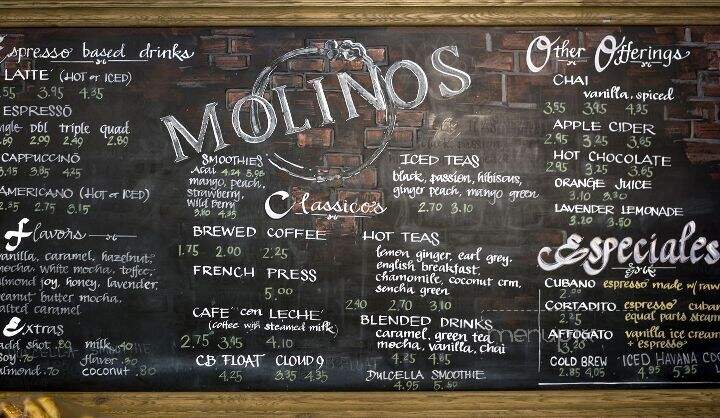 Espresso based drinks
LATTE (HOT or ICED)
3.95 4.35
ESPRESSO
dbl triple quad
2.09 2.49
CAPPUCCINO
3.95 4.25
AMERICANO (HOT or ICED)
2.35 2.75 3.15
Flavors
vanilla, caramel, hazelnut,
mocha, white mocha, toffee,
almond joy, honey, lavender,
peanut butter mocha,
salted caramel
Extras
add shot .80 milk .40
soy .70 flavor .80
almond .70 coconut .80
MOLINOS
SMOOTHIES
Acai 4.24 5.96
mango, peach,
strawberry,
Wild Berry
3.80 4.35
ICED TEAS
black, passion, hibiscus,
ginger peach, mango green
2.70 3.10
Classicos
BREWED COFFEE
1.75 2.00 2.25
FRENCH PRESS
5.00
CAFE "con LECHE"
(coffee with steamed milk)
2.75 3.45 4.10
CB FLOAT CLOUD 9
4.25 3.95 4.35
HOT TEAS
lemon ginger, earl grey,
english breakfast,
chamomile, coconut crm,
sencha green
2.70 3.10
BLENDED DRINKS
caramel, green tea
mocha, vanilla, chai
4.25 4.65
DULCELLA SMOOTHIE
4.95 5.50
Other Offerings
CHAI
vanilla, spiced
3.55 3.95 4.35
APPLE CIDER
2.95 3.25 3.65
HOT CHOCOLATE
2.95 3.25 3.65
ORANGE JUICE
3.10 3.30
LAVENDER LEMONADE
3.20 3.50
Especiales
CUBANO espresso made w/ raw
CORTADITO espresso cuban
equal parts steam
AFFOGATO vanilla ice cream
+ espresso
COLD BREW ICED HAVANA
2.85 4.05 4.95 5.35